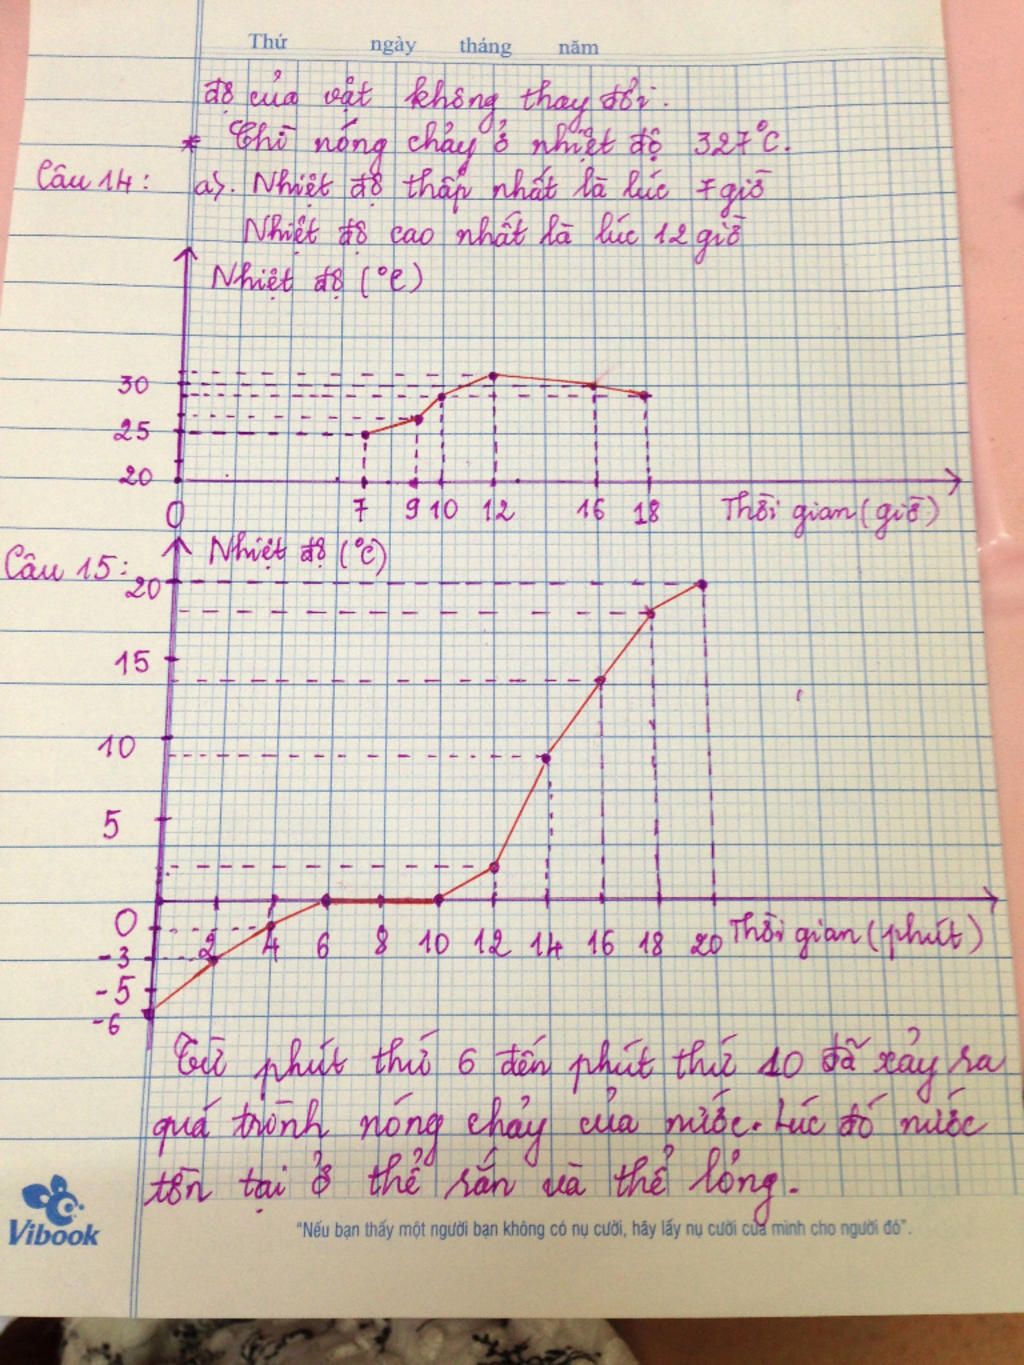 Thứ ngày tháng năm
độ của vật không thay đổi.
* Chì nóng chảy ở nhiệt độ 327°C.
Câu 14: a). Nhiệt độ thấp nhất là lúc 7 giờ
Nhiệt độ cao nhất là lúc 12 giờ
Nhiệt độ (°C)
30
25
20
0 7 9 10 12 16 18 Thời gian (giờ)
Câu 15: Nhiệt độ (°C)
20
15
10
5
0
2 4 6 8 10 12 14 16 18 20 Thời gian (phút)
-3
-5
-6
Từ phút thứ 6 đến phút thứ 10 đã xảy ra
quá trình nóng chảy của nước. Lúc đó nước
tồn tại ở thể rắn và thể lỏng.
Vibook
"Nếu bạn thấy một người bạn không có nụ cười, hãy lấy nụ cười của mình cho người đó".